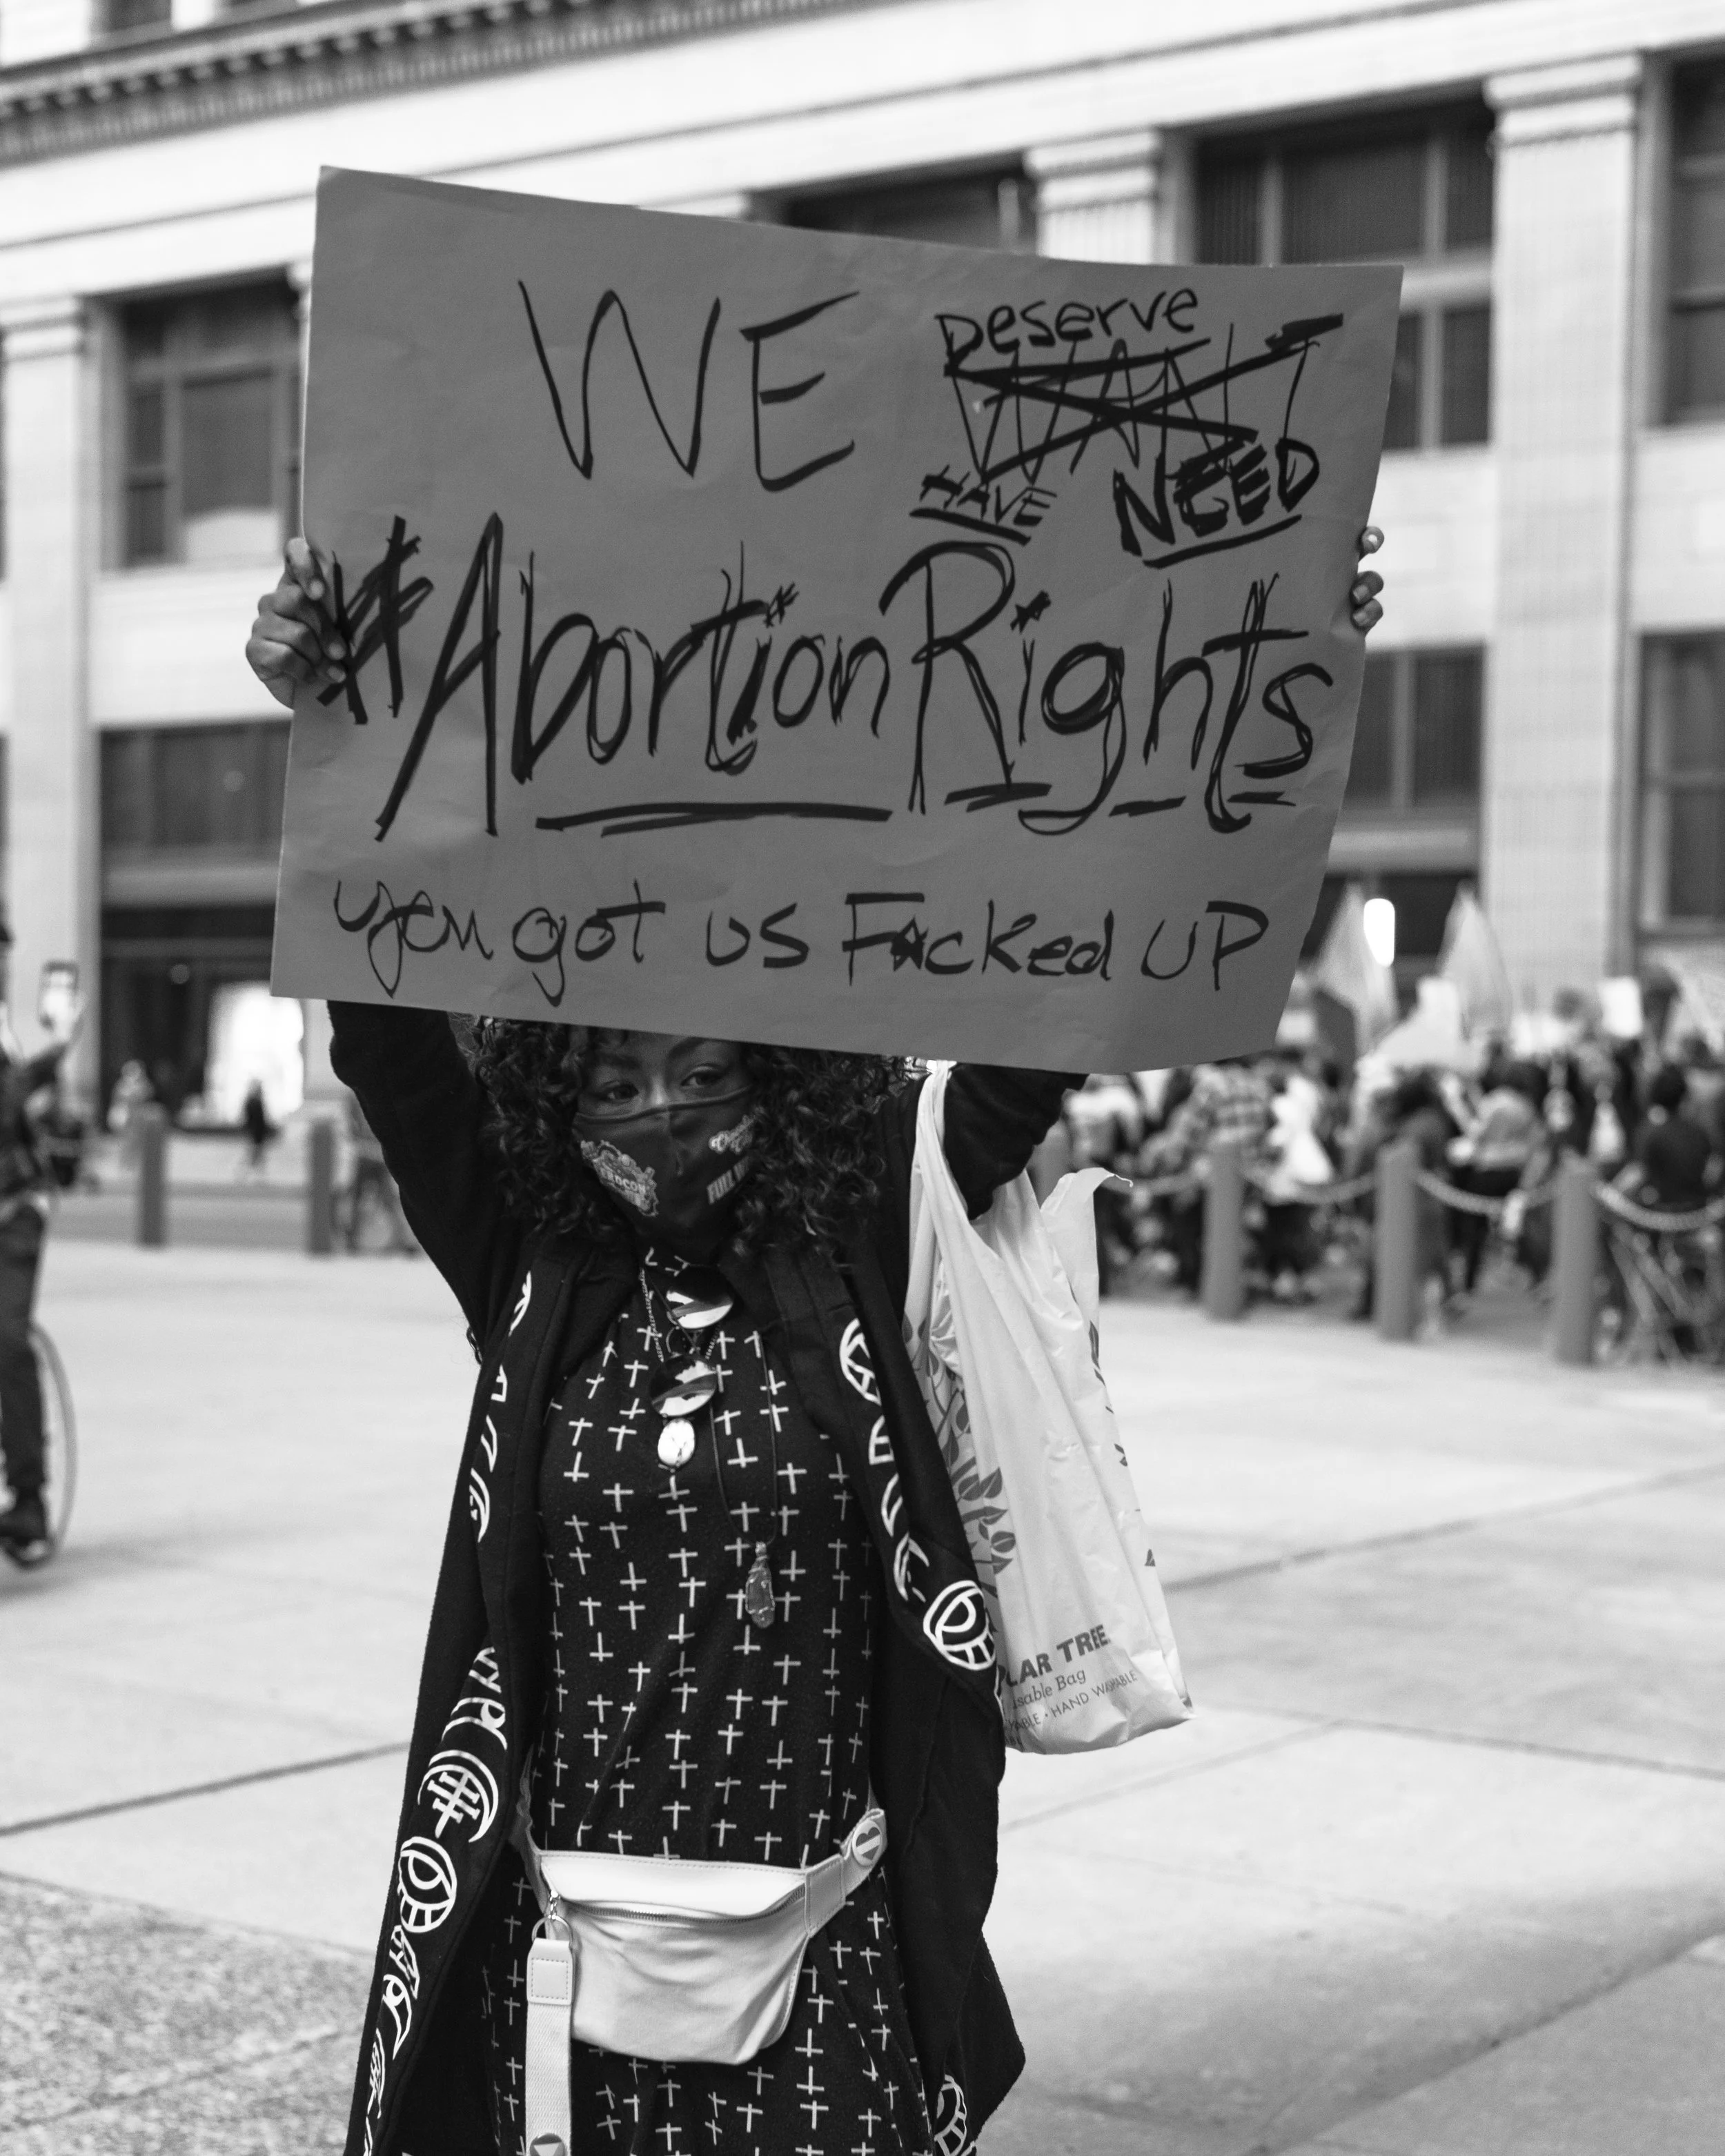 WE Deserve
WANT
HAVE NEED
#AbortionRights
you got us F*cked UP
FULL
LAR TREE
usable Bag
ABLE • HAND WASHABLE